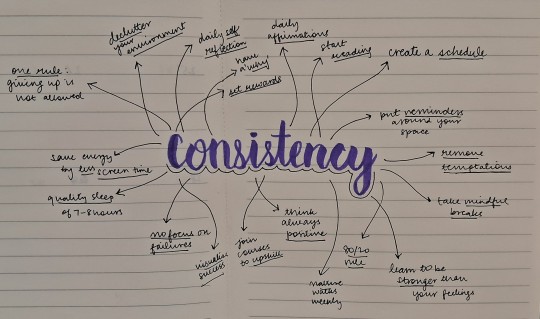 declutter
your
environment
daily self
reflection
daily
affirmations
have
a why
start
reading
create a schedule
one rule:
giving up is
not allowed
set rewards
put reminders
around your
space
consistency
save energy
by less screen time
remove
temptations
quality sleep
of 7-8 hours
take mindful
breaks
no focus on
failures
visualise
success
join
courses
to upskill
think
always
positive
nature
walks
weekly
80/20
rule
learn to be
stronger than
your feelings